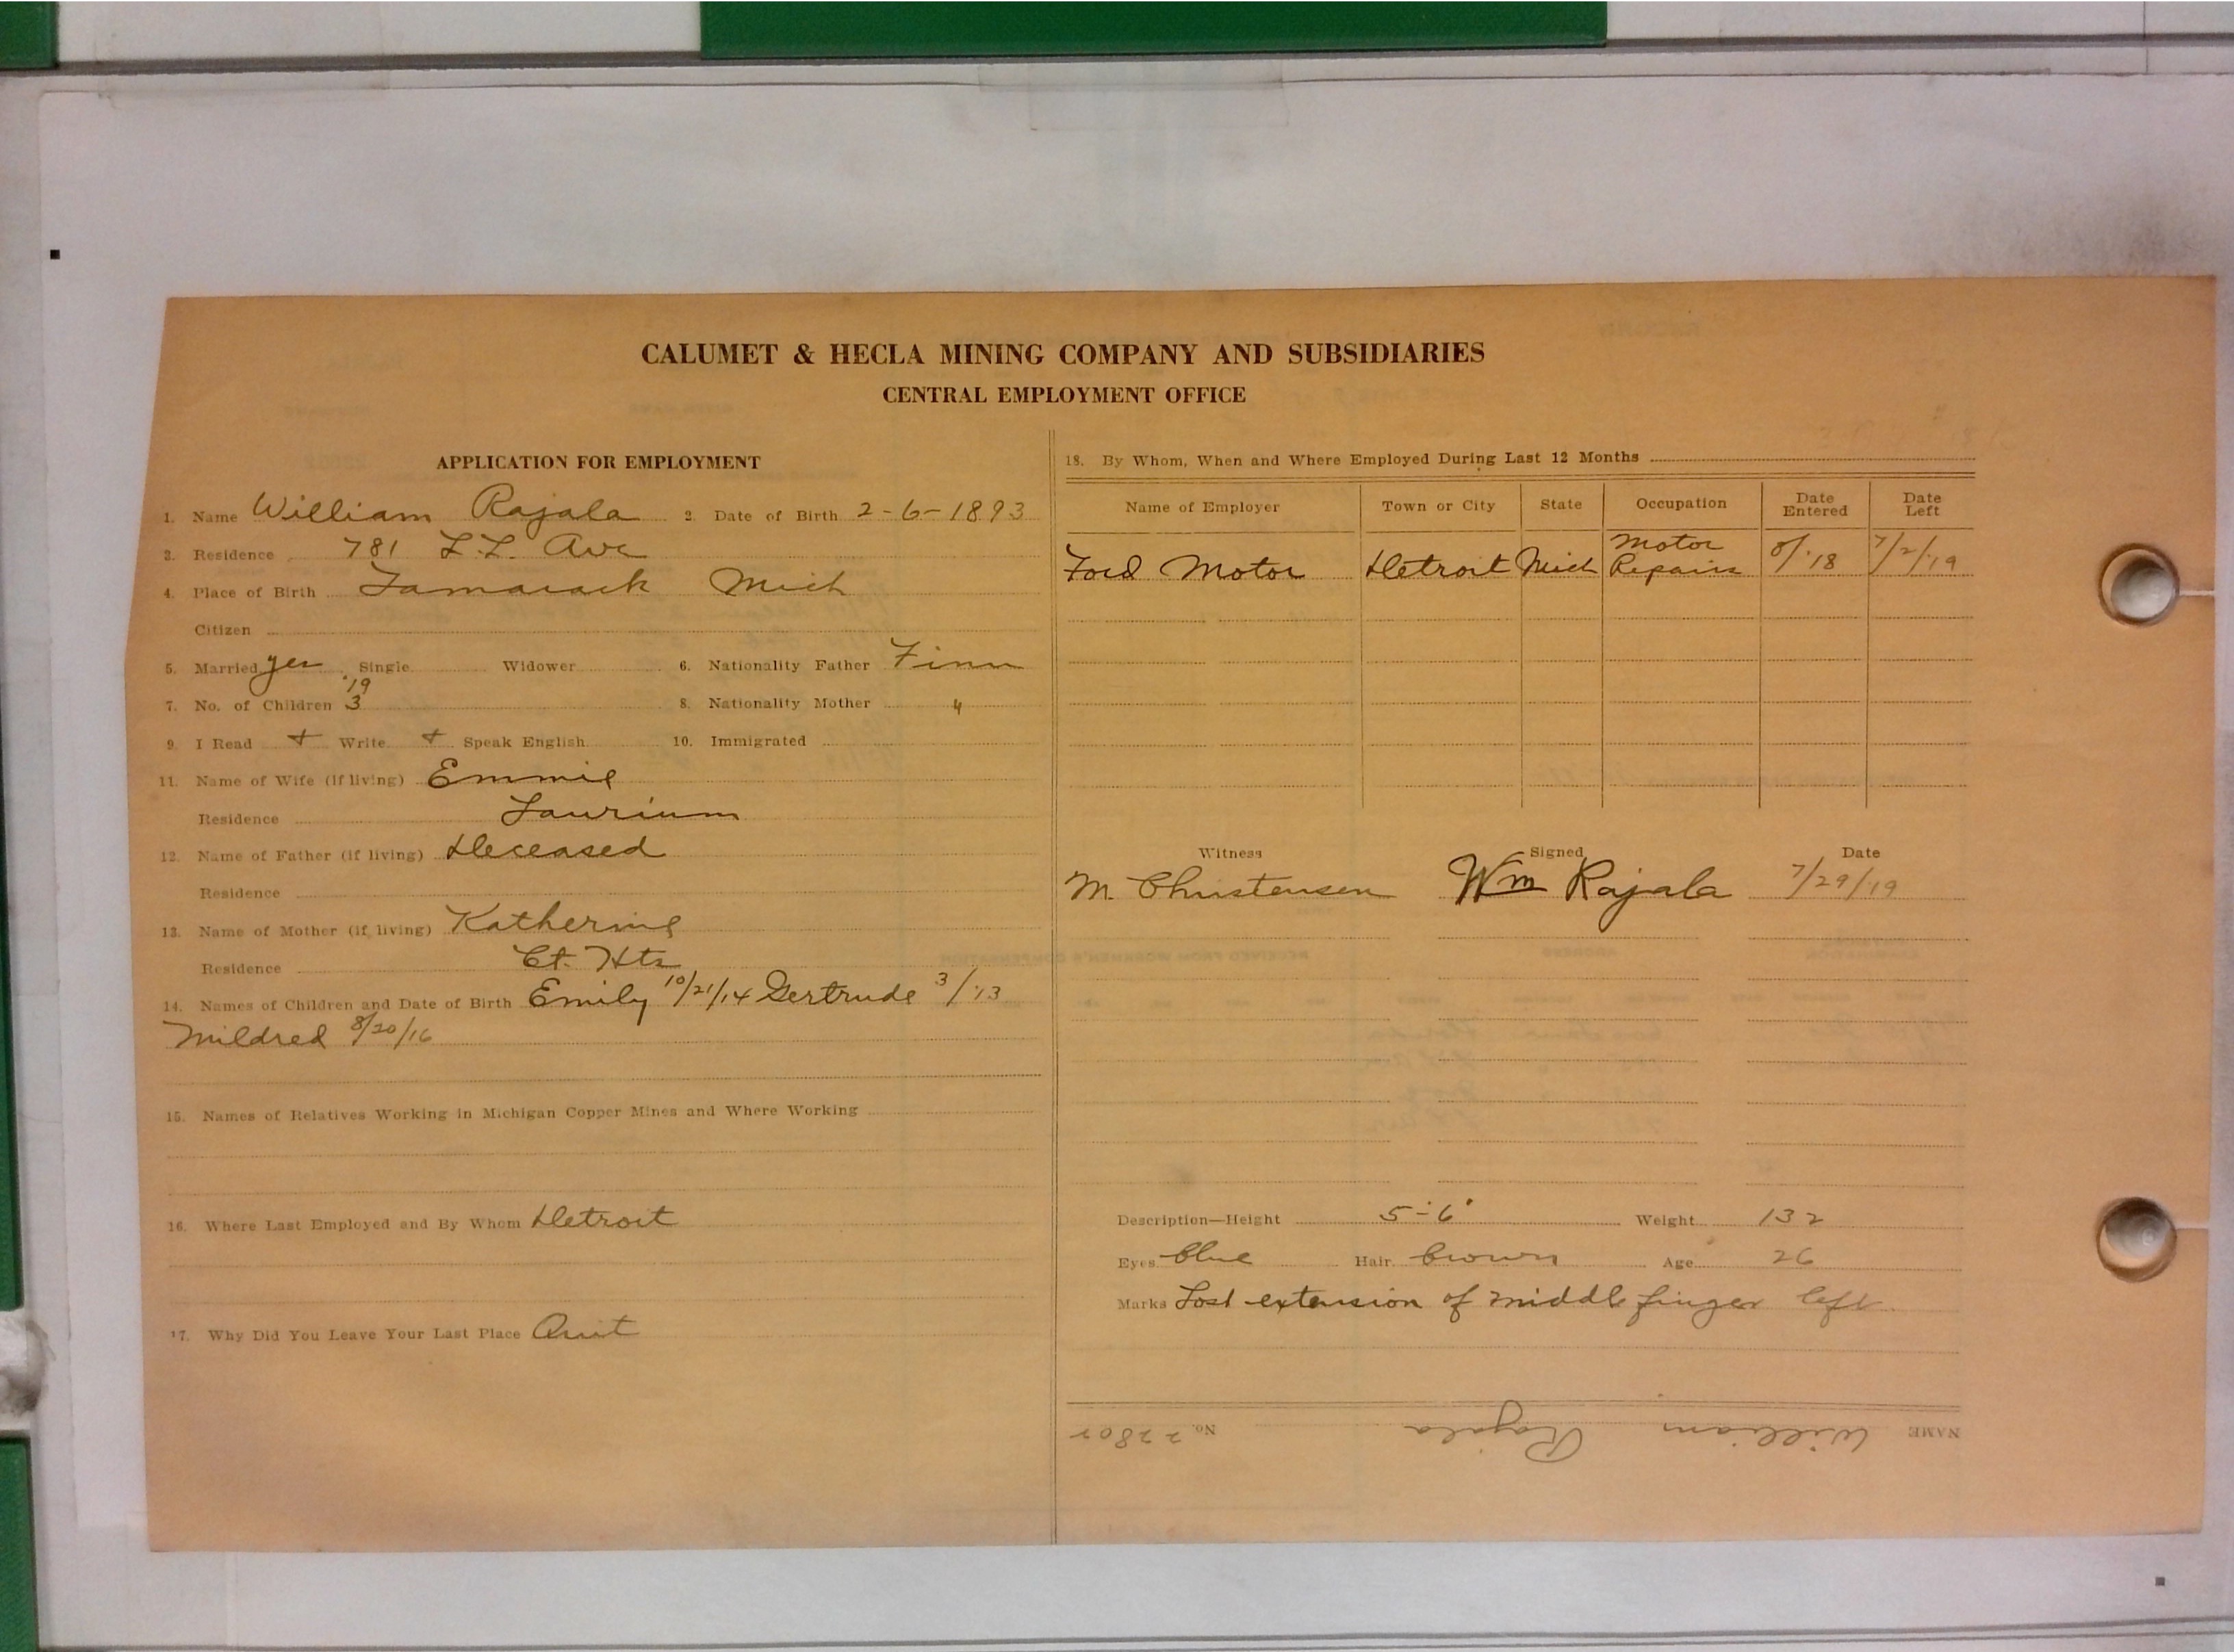 CALUMET & HECLA MINING COMPANY AND SUBSIDIARIES
CENTRAL EMPLOYMENT OFFICE
APPLICATION FOR EMPLOYMENT
1. Name William Rajala 2. Date of Birth 2-6-1893
3. Residence 781 L.L. Ave
4. Place of Birth Tamarack Mich
Citizen
5. Married yes Single Widower 6. Nationality Father Finn
'19
7. No. of Children 3 8. Nationality Mother "
9. I Read + Write + Speak English 10. Immigrated
11. Name of Wife (if living) Emmie
Residence Laurium
12. Name of Father (if living) Deceased
Residence
13. Name of Mother (if living) Katherine
Residence Ct. Hts
14. Names of Children and Date of Birth Emily 10/21/14 Gertrude 3/'13
Mildred 8/20/16
15. Names of Relatives Working in Michigan Copper Mines and Where Working
16. Where Last Employed and By Whom Detroit
17. Why Did You Leave Your Last Place Quit
18. By Whom, When and Where Employed During Last 12 Months
Name of Employer Town or City State Occupation Date Entered Date Left
Ford Motor Detroit Mich Motor Repairs 8/'18 7/2/'19
Witness Signed Date
M. Christensen Wm Rajala 7/29/'19
Description—Height 5-6" Weight 132
Eyes blue Hair brown Age 26
Marks Lost extension of middle finger left
NAME William Rajala No. 2280